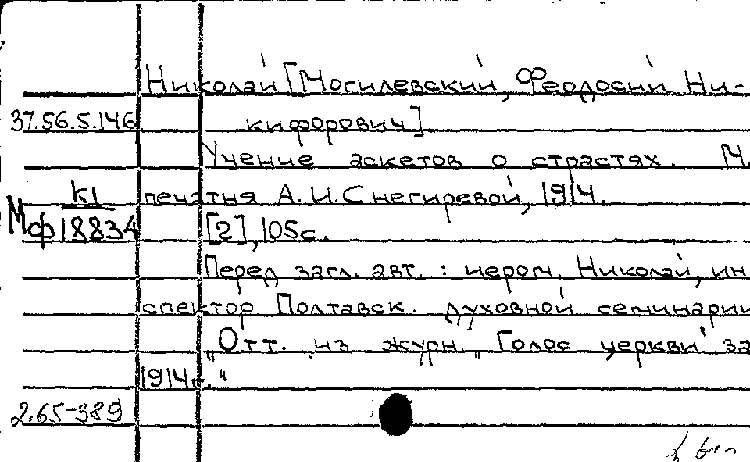 Николай [Могилевский, Феодосий Ни-
37.56.5.146 кифорович]
Учение аскетов о страстях. М.
К1 печатня А. И. Снегиревой, 1914.
Мф 18834 [2], 105с.
Перед загл. авт.: иером. Николай, ин
спектор Полтавск. духовной семинарии
"Отт. из журн. "Голос церкви" за
1914г."
2.65-389